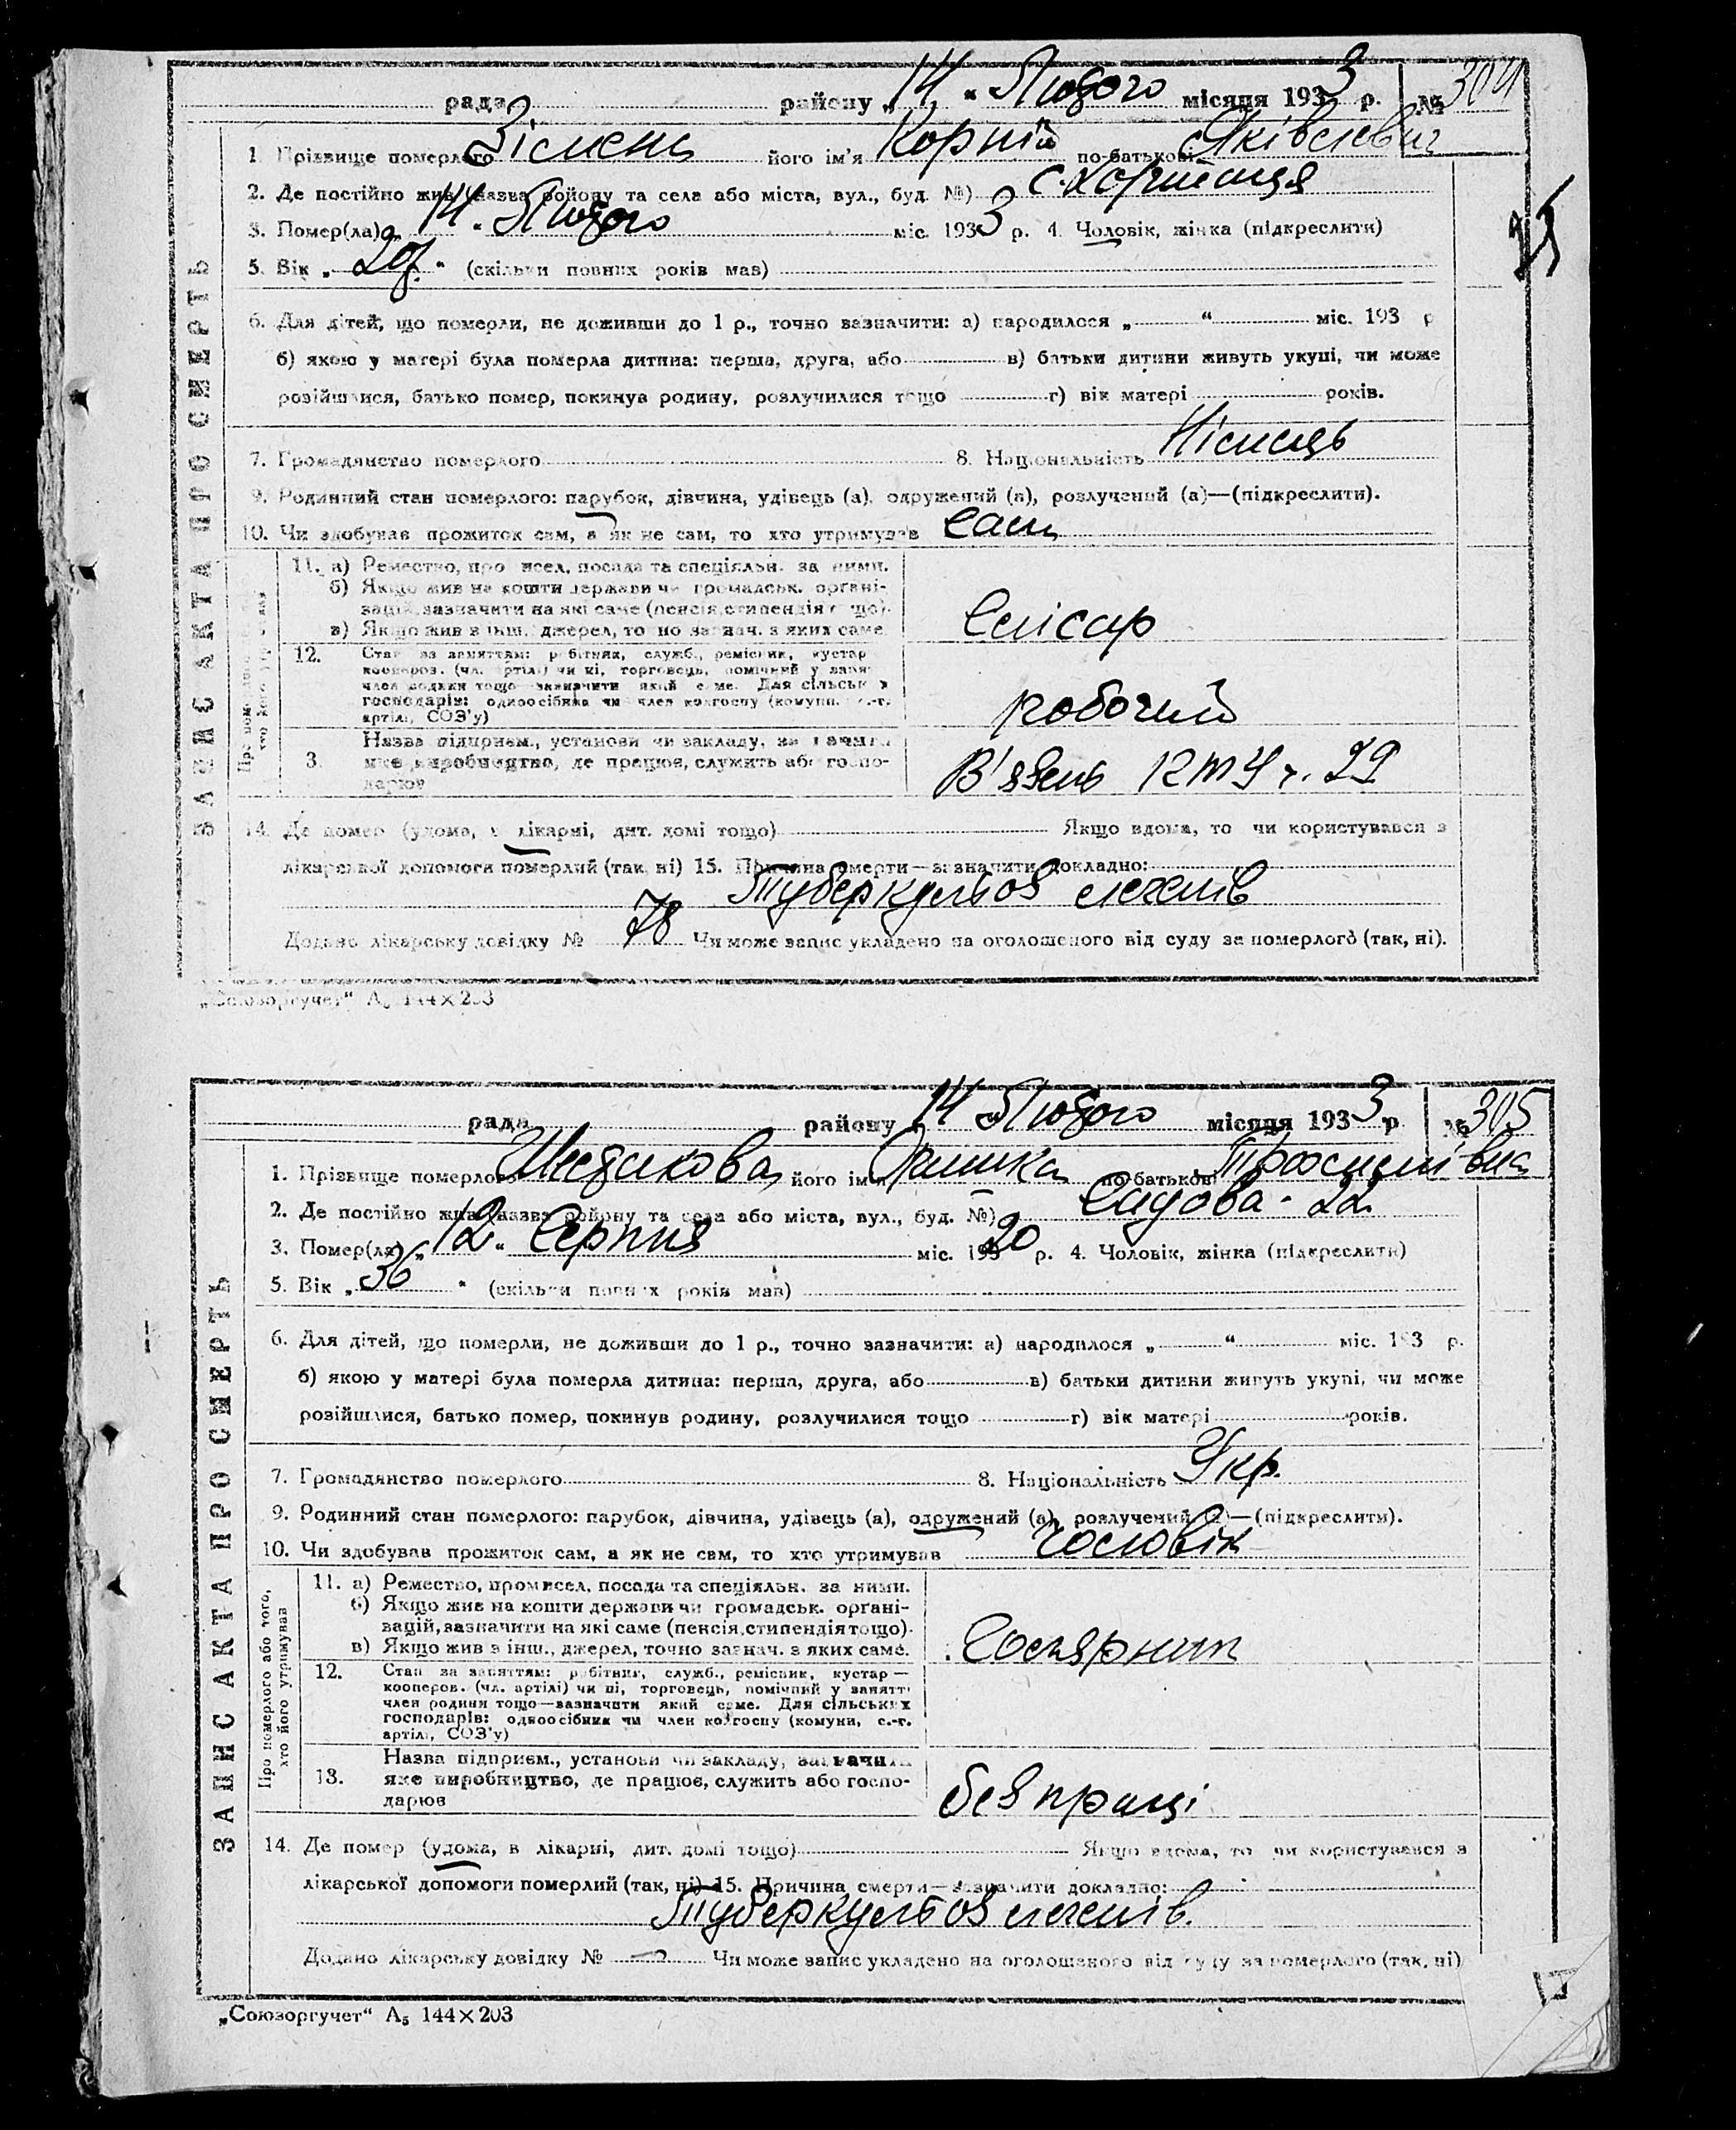 рада району „14“ Лютого місяця 1933 р. № 304
1. Прізвище померлого його ім'я Корній по-батькові Яківлевич
2. Де постійно жив (назва району та села або міста, вул., буд. №) с. Хортиця
3. Помер(ла) „14“ Лютого міс. 1933 р. 4. Чоловік, жінка (підкреслити)
5. Вік „ “ (скільки повних років мав)
25
6. Для дітей, що померли, не доживши до 1 р., точно зазначити: а) народилося „ “ міс. 193 р
б) якою у матері була померла дитина: перша, друга, або в) батьки дитини живуть укупі, чи може
розійшлися, батько помер, покинув родину, розлучилися тощо г) вік матері років.
7. Громадянство померлого 8. Національність Німець
9. Родинний стан померлого: парубок, дівчина, удівець (а), одружений (а), розлучений (а)—(підкреслити).
10. Чи здобував прожиток сам, а як не сам, то хто утримував сам
ЗАПИС АКТА ПРО СМЕРТЬ
11. а) Ремество, промисел, посада та спеціяльн. за ними.
б) Якщо жив на кошти держави чи громадськ. органі-
зацій, зазначити на які саме (пенсія, стипендія тощо).
в) Якщо жив з інш. джерел, точно зазнач. з яких саме
Слісар
12. Стан за заняттям: робітник, служб., ремісник, кустар
кооперов. (чл. артілі) чи ні, торговець, помічний у занятт
член родини тощо—зазначити який саме. Для сільських
господарів: одноосібник чи член колгоспу (комуни, с.-г.
артілі, СОЗ'у)
робочий
Назва підприєм., установи чи закладу, зазначити
3. яке виробництво, де працює, служить або госпо-
дарює
В'язень
14. Де помер (удома, в лікарні, дит. домі тощо) Якщо вдома, то чи користувався з
лікарської допомоги померлий (так, ні) 15. Причина смерти—зазначити докладно:
Туберкульоз легенів
Додано лікарську довідку № 78 Чи може запис укладено на оголошеного від суду за померлого (так, ні).
„Союзоргучет“ А5 144×203
рада району „14“ Лютого місяця 1933 р № 305
1. Прізвище померлого його ім'я по-батькові
2. Де постійно жив (назва району та села або міста, вул., буд. №) Садова - 22
3. Помер(ла) „12“ Серпня міс. 1920 р. 4. Чоловік, жінка (підкреслити)
5. Вік „36“ (скільки повних років мав)
6. Для дітей, що померли, не доживши до 1 р., точно зазначити: а) народилося „ “ міс. 193 р.
б) якою у матері була померла дитина: перша, друга, або в) батьки дитини живуть укупі, чи може
розійшлися, батько помер, покинув родину, розлучилися тощо г) вік матері років.
7. Громадянство померлого 8. Національність Укр.
9. Родинний стан померлого: парубок, дівчина, удівець (а), одружений (а), розлучений (а)—(підкреслити).
10. Чи здобував прожиток сам, а як не сам, то хто утримував чоловік
ЗАПИС АКТА ПРО СМЕРТЬ
Про померлого або того,
хто його утримував
11. а) Ремество, промисел, посада та спеціяльн. за ними.
б) Якщо жив на кошти держави чи громадськ. органі-
зацій, зазначити на які саме (пенсія, стипендія тощо).
в) Якщо жив з інш., джерел, точно зазнач. з яких саме.
12. Стан за заняттям: робітник, служб., ремісник, кустар—
кооперов. (чл. артілі) чи ні, торговець, помічний у занятті
член родини тощо—зазначити який саме. Для сільських
господарів: одноосібник чи член колгоспу (комуни, с.-г.
артілі, СОЗ'у)
Назва підприєм., установи чи закладу, зазначити
13. яке виробництво, де працює, служить або госпо-
дарює
без праці
14. Де помер (удома, в лікарні, дит. домі тощо) Якщо вдома, то чи користувався з
лікарської допомоги померлий (так, ні) 15. Причина смерти—зазначити докладно:
Туберкульоз легенів.
Додано лікарську довідку № — Чи може запис укладено на оголошеного від суду за померлого (так, ні)
„Союзоргучет“ А5 144×203